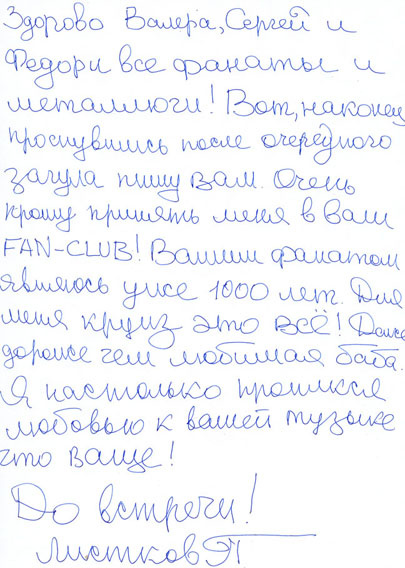 Здорово Валера, Сергей и
Федор и все фанаты и
металлюги! Вот, наконец
проснувшись после очередного
загула пишу вам. Очень
прошу принять меня в ваш
FAN-CLUB! Вашим фанатом
являюсь уже 1000 лет. Для
меня круиз это всё! Даже
дороже чем любимая баба.
Я настолько проникся
любовью к вашей музыке
что ваще!
До встречи!
Листков